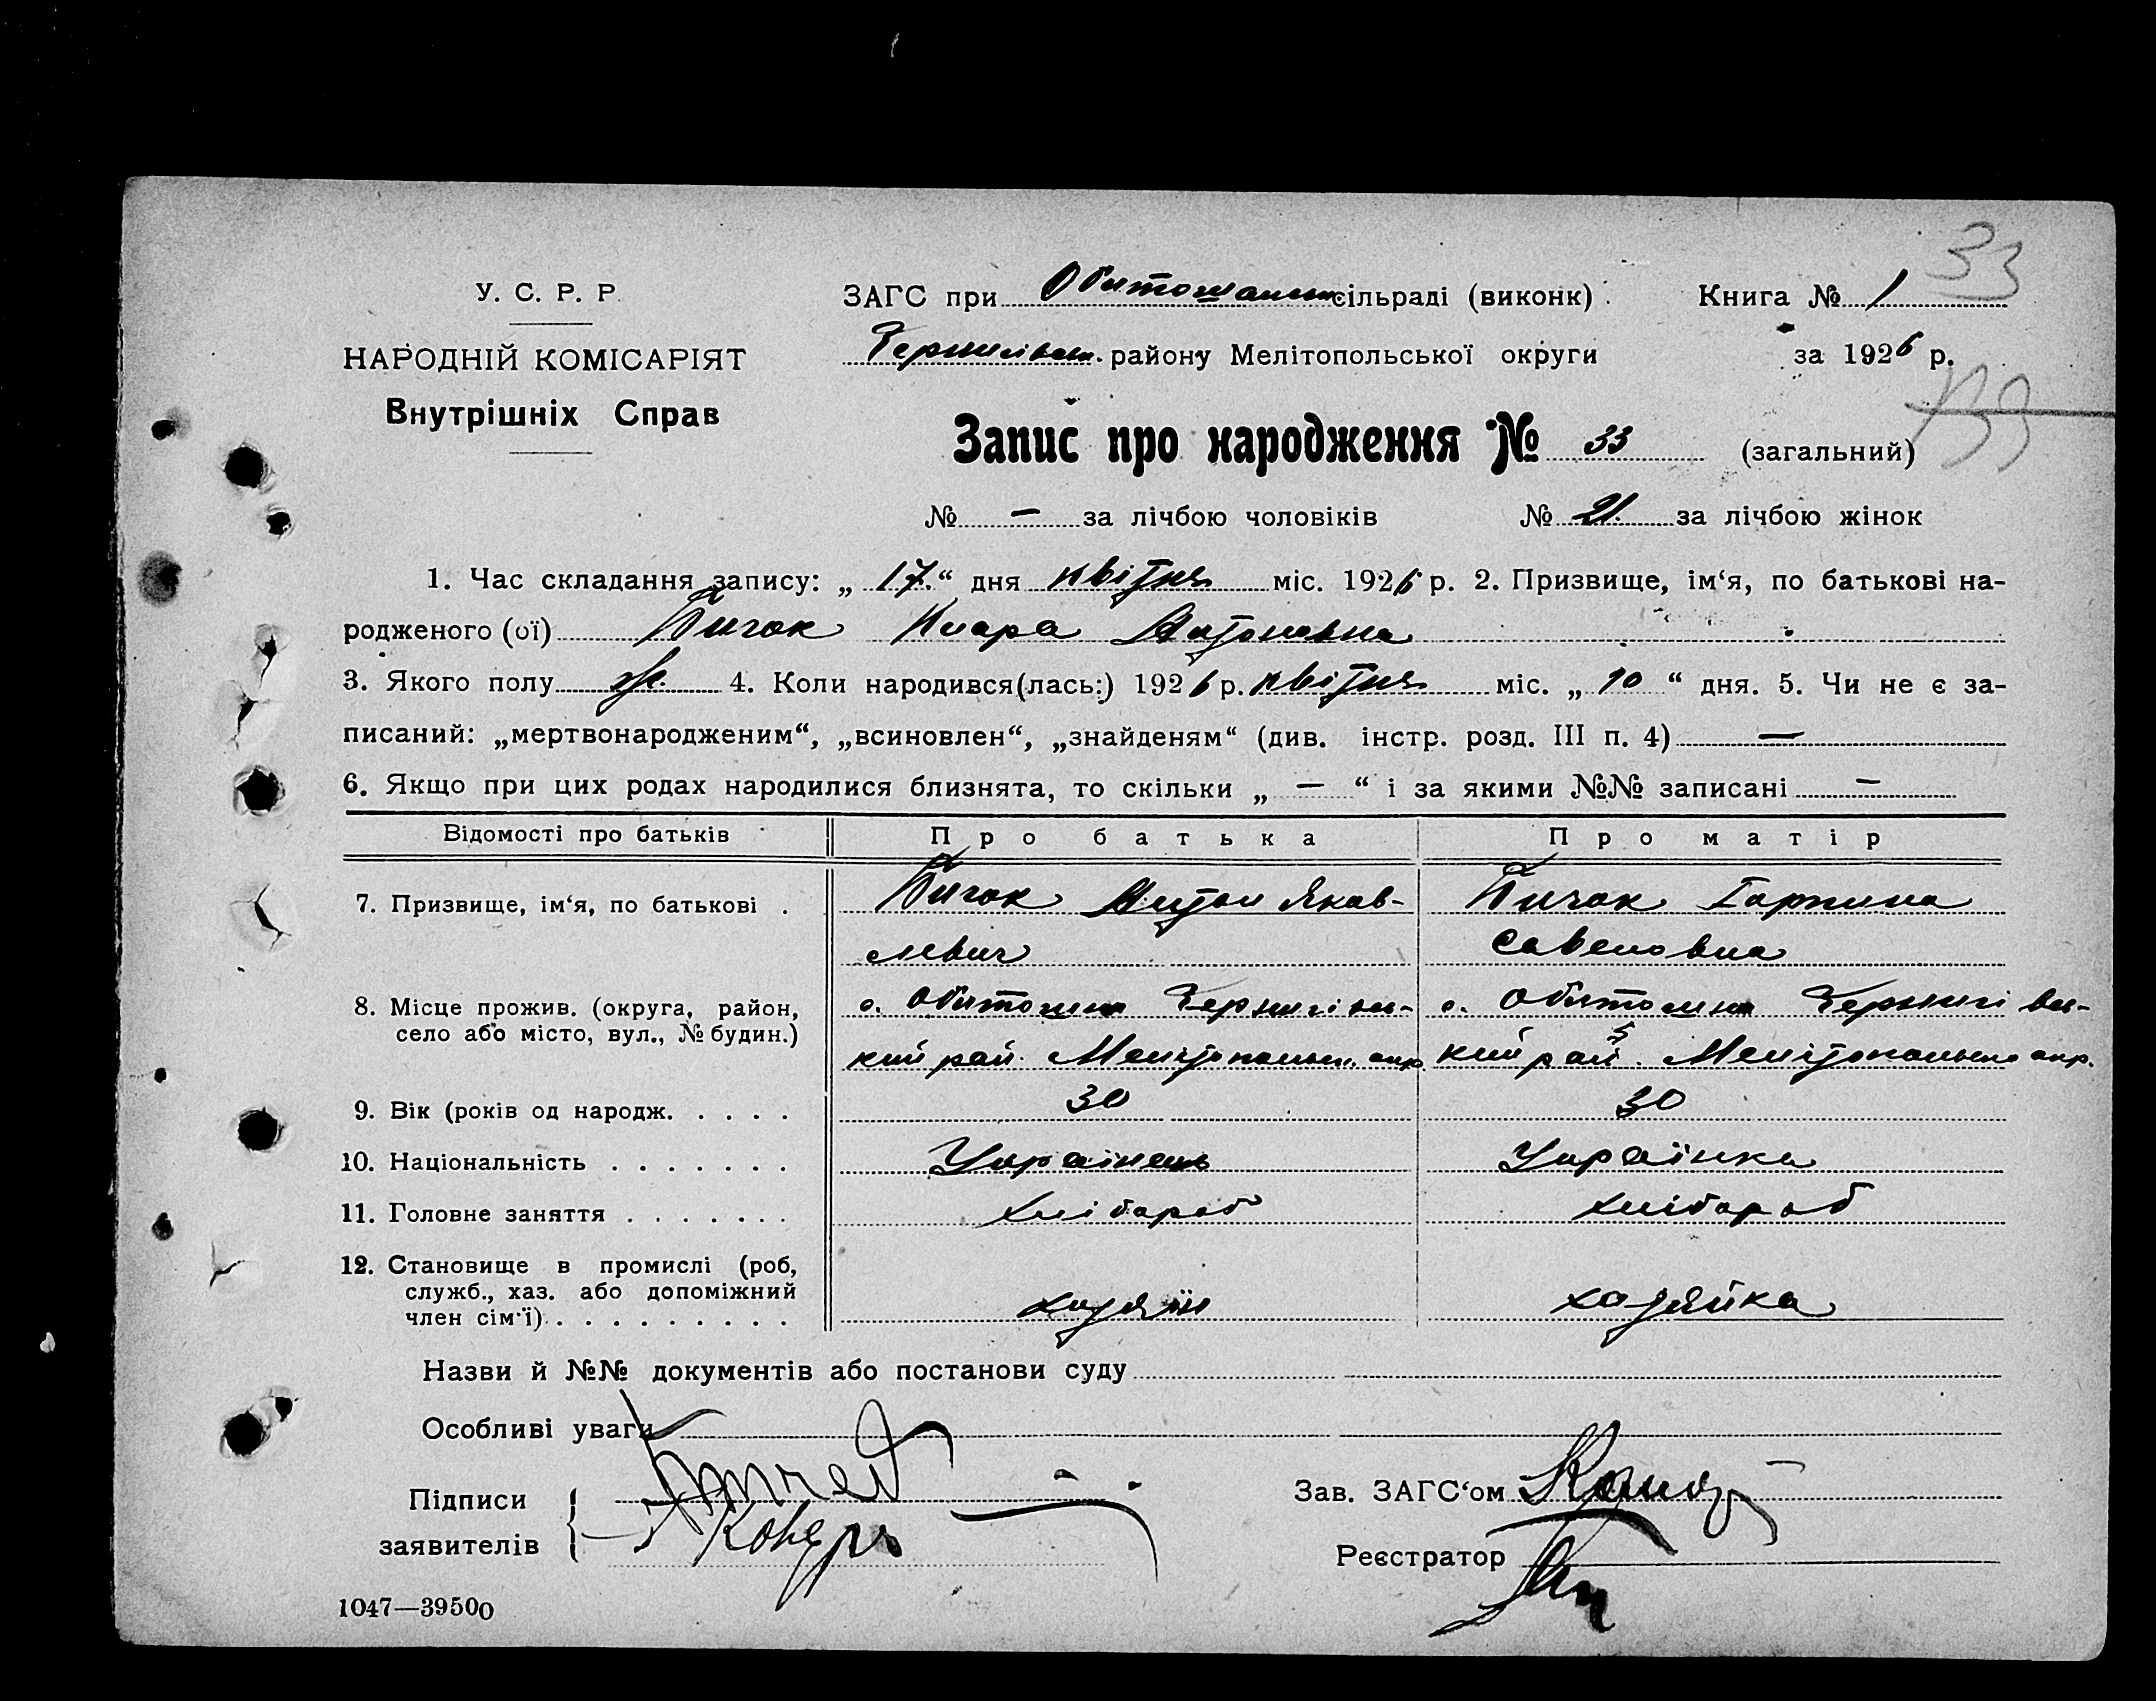 33
У. С. Р. Р.
ЗАГС при Обиточанськ сільраді (виконк) Книга № 1
НАРОДНІЙ КОМІСАРІЯТ
Чернигівськ. району Мелітопольської округи за 1926 р.
Внутрішніх Справ
Запис про народження № 33 (загальний)
№ — за лічбою чоловіків № 21. за лічбою жінок
1. Час складання запису: „ 17. “ дня квітня міс. 1926 р. 2. Призвище, ім‘я, по батькові на-
родженого (ої) Бичок Клара Антоновна
3. Якого полу ж. 4. Коли народився(лась:) 1926 р. квітня міс. „ 10 “ дня. 5. Чи не є за-
писаний: „мертвонародженим“, „всиновлен“, „знайденям“ (див. інстр. розд. III п. 4) —
6. Якщо при цих родах народилися близнята, то скільки „ — “ і за якими №№ записані —
Відомості про батьків Про батька Про матір
7. Призвище, ім‘я, по батькові . Бичок Антон Яков- Бичок Горпина
левич Савеловна
8. Місце прожив. (округа, район, с. Обиточна Чернигівсь- с. Обиточна Чернигівсь-
село або місто, вул., № будин.)
кий рай. Мелітопольськ. окр кий рай. Мелітопольськ окр.
9. Вік (років од народж. . . . . 30 30
10. Національність . . . . . . . Українець Українка
11. Головне заняття . . . . . . . хлібороб хлібороб
12. Становище в промислі (роб,
служб., хаз. або допоміжний
член сім‘ї) . . . . . . . . . хазяїн хазяйка
Назви й №№ документів або постанови суду
Особливі уваги
Підписи
Зав. ЗАГС‘ом
заявителів
Реєстратор
1047—39500